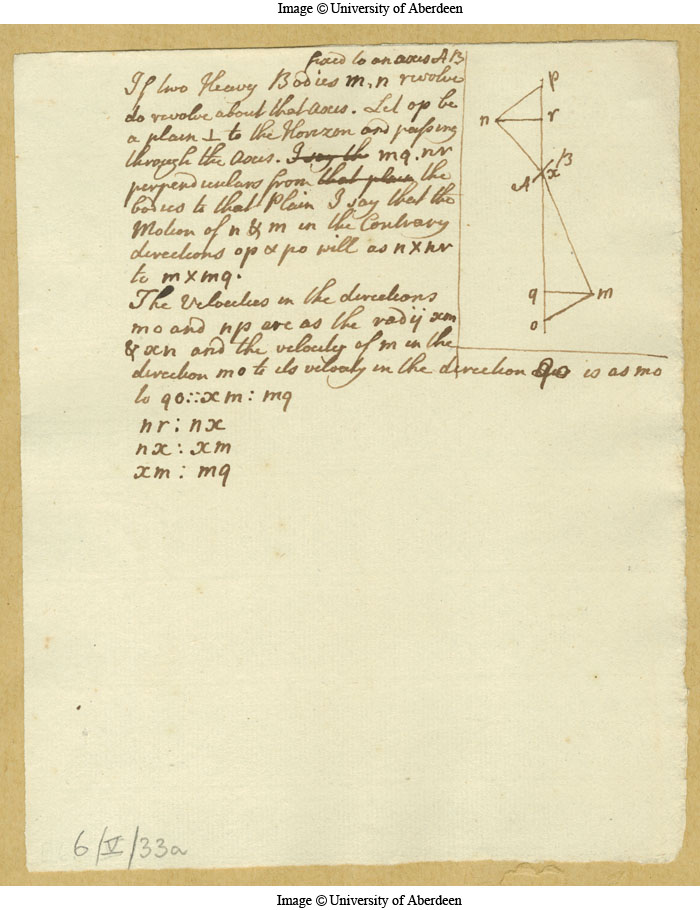 Image © University of Aberdeen
fixed to an axis AB
If two Heavy Bodies m, n revolve
do revolve about that axis. Let op be
a plain ⊥ to the Horizon and passing
through the axis. I say th mq. nr
perpendiculars from that plain the
bodies to that Plain I say that the
Motion of n & m in the Contrary
directions op & po will as n×nr
to m×mq.
The Velocities in the directions
mo and np are as the radij xm
& xn and the velocity of m in the
direction mo to its velocity in the direction qo is as mo
to qo::xm: mq
nr: nx
nx: xm
xm: mq
p
n
r
B
A
x
q
m
o
6/V/33a
Image © University of Aberdeen